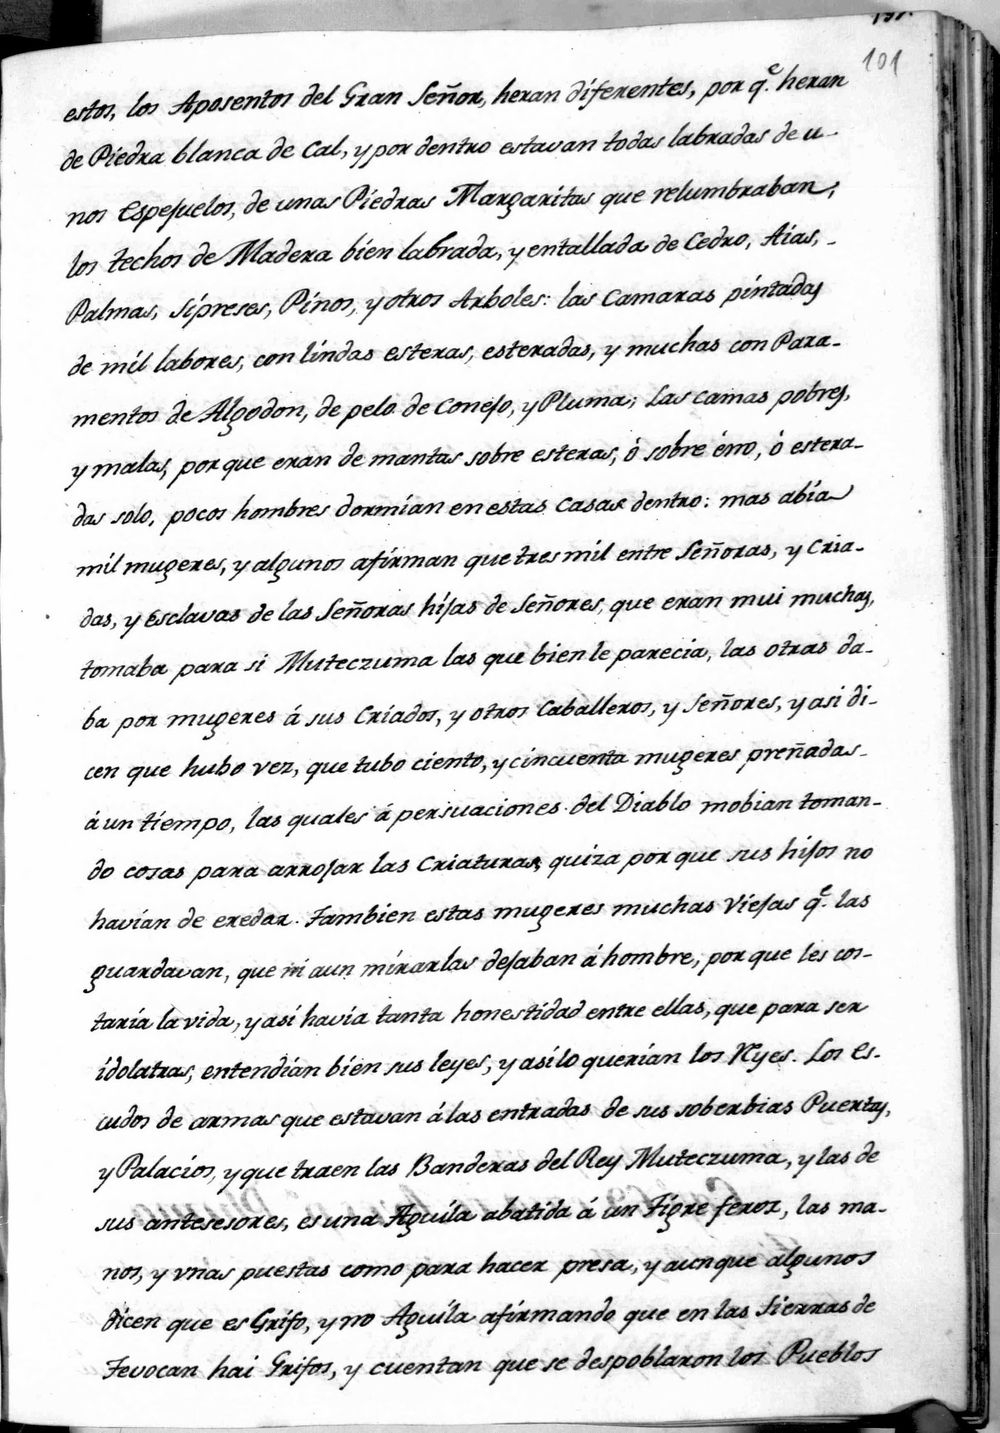 101
estos, los Aposentos del Gran Señor, heran diferentes, por q.e heran
de Piedra blanca de Cal, y por dentro estavan todas labradas de u-
nos Espejuelos, de unas Piedras Margaritas que relumbraban;
los techos de Madera bien labrada, y entallada de Cedro, Aias, -
Palmas, Sipreses, Pinos, y otros Arboles: las Camaras pintadas
de mil labores, con lindas esteras, esteradas, y muchas con Para-
mentos de Algodon, de pelo de Conejo, y Pluma; Las camas pobres,
y malas, por que eran de mantas sobre esteras, ó sobre éno, ó estera-
das solo, pocos hombres dormian en estas Casas dentro: mas abia
mil mugeres, y algunos afirman que tres mil entre Señoras, y Cria-
das, y Esclavas de las Señoras hijas de Señores, que eran mui muchas,
tomaba para si Muteczuma las que bien le parecia, las otras da-
ba por mugeres á sus Criados, y otros Caballeros, y Señores, y asi di-
cen que hubo vez, que tubo ciento, y cincuenta mugeres preñadas-
á un tiempo, las quales á persuaciones del Diablo mobian toman-
do cosas para arrojar las Criaturas, quiza por que sus hijos no
havian de eredar. Tambien estas mugeres muchas Viejas q.e las
guardavan, que ni aun mirarlas dejaban á hombre, por que les cos-
taria la vida, y asi havia tanta honestidad entre ellas, que para ser
idolatras, entendian bien sus leyes, y asi lo querian los Ryes. Los Es-
cudos de armas que estavan á las entradas de sus soberbias Puertas,
y Palacios, y que traen las Banderas del Rey Muteczuma, y las de
sus antesesores, es una Aguila abatida á un Tigre feroz, las ma-
nos, y vnas puestas como para hacer presa, y aunque algunos
dicen que es Grifo, y no Aguila afirmando que en las Sierras de
Tevocan hai Grifos, y cuentan que se despoblaron los Pueblos